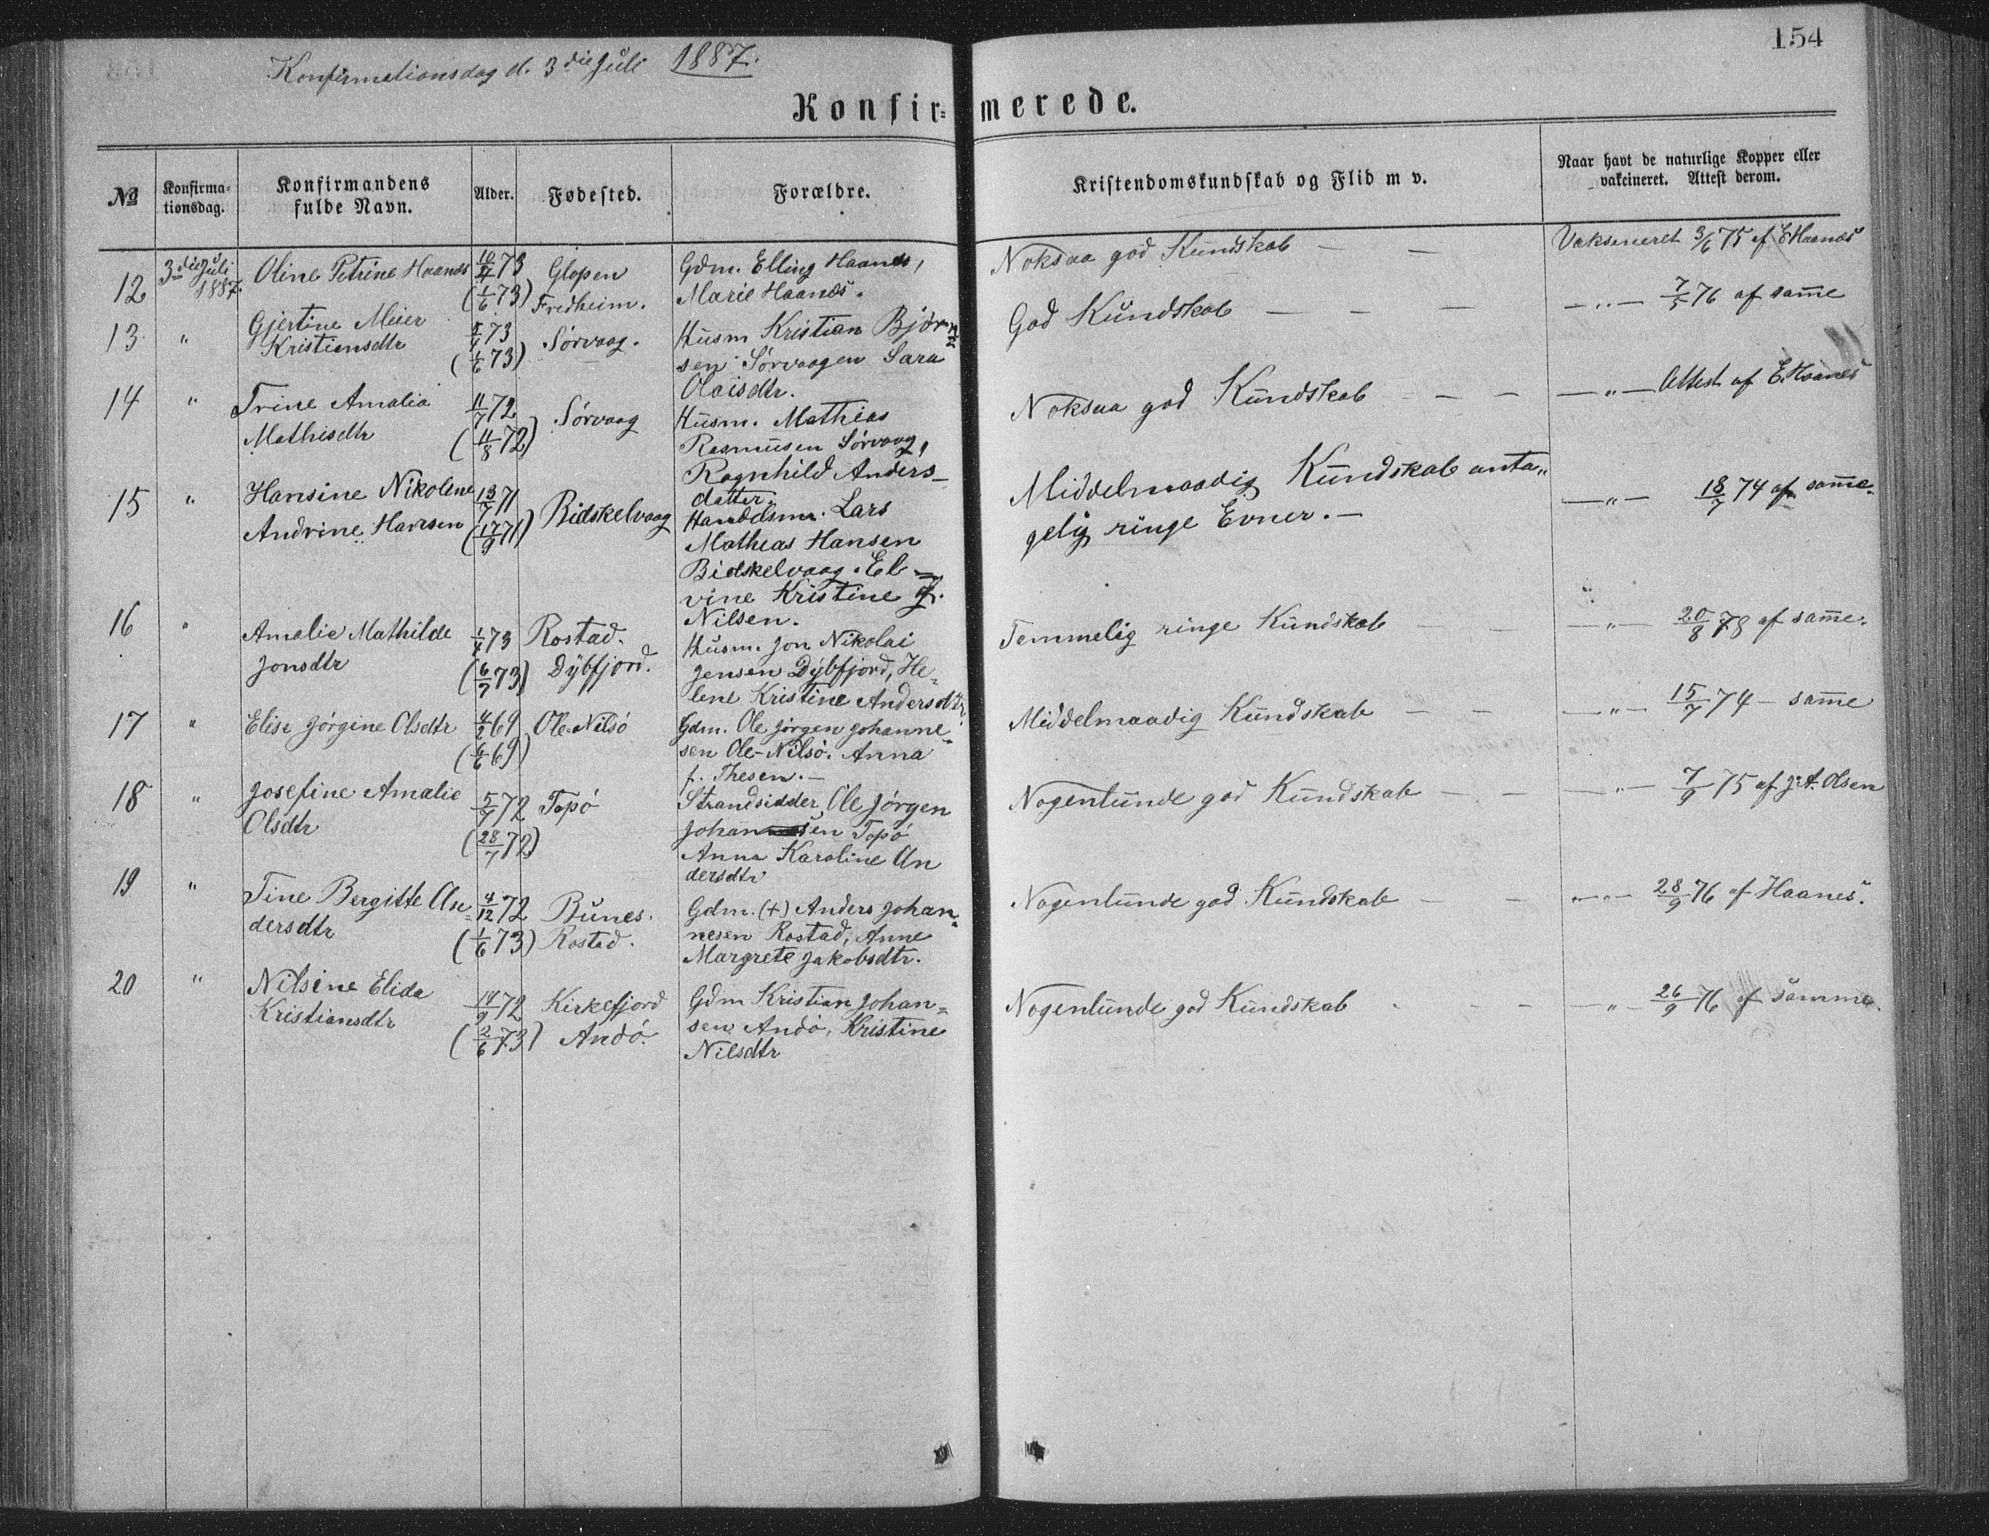 154
Konfirmationsdag d. 3die Juli 1887.
Konfir= merede.
No
Konfirma=
tionsdag.
Konfirmandens
fulde Navn.
Alder.
Fødested.
Forældre.
Kristendomskundskab og Flid m v.
Naar havt de naturlige Kopper eller
vakcineret. Attest derom.
12 3die Juli 1887. Oline Petrine Haanæs 10/4 73 (1/6 73) Glopen Fredheim. Gdm. Elling Haanæs,
Marie Haanæs.
Noksaa god Kundskab — — Vaksineret 3/6 75 af E Haanæs
13 " Gjertine Meier
Kristiansdtr
4/4 73
(1/6 73)
Sørvaag.
Husm Kristian Bjørn=
sen Sørvaagen Sara
Olaisdtr.
God Kundskab — — — — — " — 7/5 76 af samme
14 " Trine Amalia
Mathisdtr
11/7 72
(11/8 72)
Sørvaag
Husm. Mathias
Rasmusen Sørvaag,
Ragnhild Anders-
datter.
Noksaa god Kundskab — — — — " — Attest af E. Haanes
15 " Hansine Nikoline
Andrine Hansen
13/7 71
(17/9 71)
Bidskelvaag
Handelsm. Lars
Mathias Hansen
Bidskelvaag. El-
vine Kristine f.
Nilsen.
Middelmaadig Kundskab anta=
gelig ringe Evner. —
— " — 18/7 74 af samme.
16 " Amalie Mathilde
Jonsdtr
1/4 73
(6/7 73)
Rostad.
Dybfjord.
Husm. Jon Nikolai
Jensen Dybfjord, He=
lene Kristine Andersdtr.
Temmelig ringe Kundskab — — — " — 20/8 78 af samme.
17 " Elise Jørgine Olsdtr 4/2 69
(4/6 69)
Ole-Nilsø
Gdm. Ole Jørgen Johanne=
sen Ole-Nilsø. Anna
f. Thesen. —
Middelmaadig Kundskab — — — " — 15/7 74 — samme
18 " Josefine Amalie
Olsdtr
5/7 72
(28/7 72)
Topø
Strandsidder Ole Jørgen
Johansen Topø
Anna Karoline An
dersdtr
Nogenlunde god Kundskab — — — " — 7/9 75 af J. A. Olsen
19 " Tine Bergitte An=
dersdtr
4/12 72
(1/6 73)
Bunes.
Rostad.
Gdm. (+) Anders Johan=
nesen Rostad, Anne
Margrete Jakobsdtr.
Nogenlunde god Kundskab — — — " — 28/9 76 af Haanes.
20 " Nilsine Elida
Kristiansdtr
14/9 72
(2/6 73)
Kirkefjord
Andø.
Gdm Kristian Johan=
sen Andø, Kristine
Nilsdtr
Nogenlunde god Kundskab — — — " — 26/9 76 af samme.